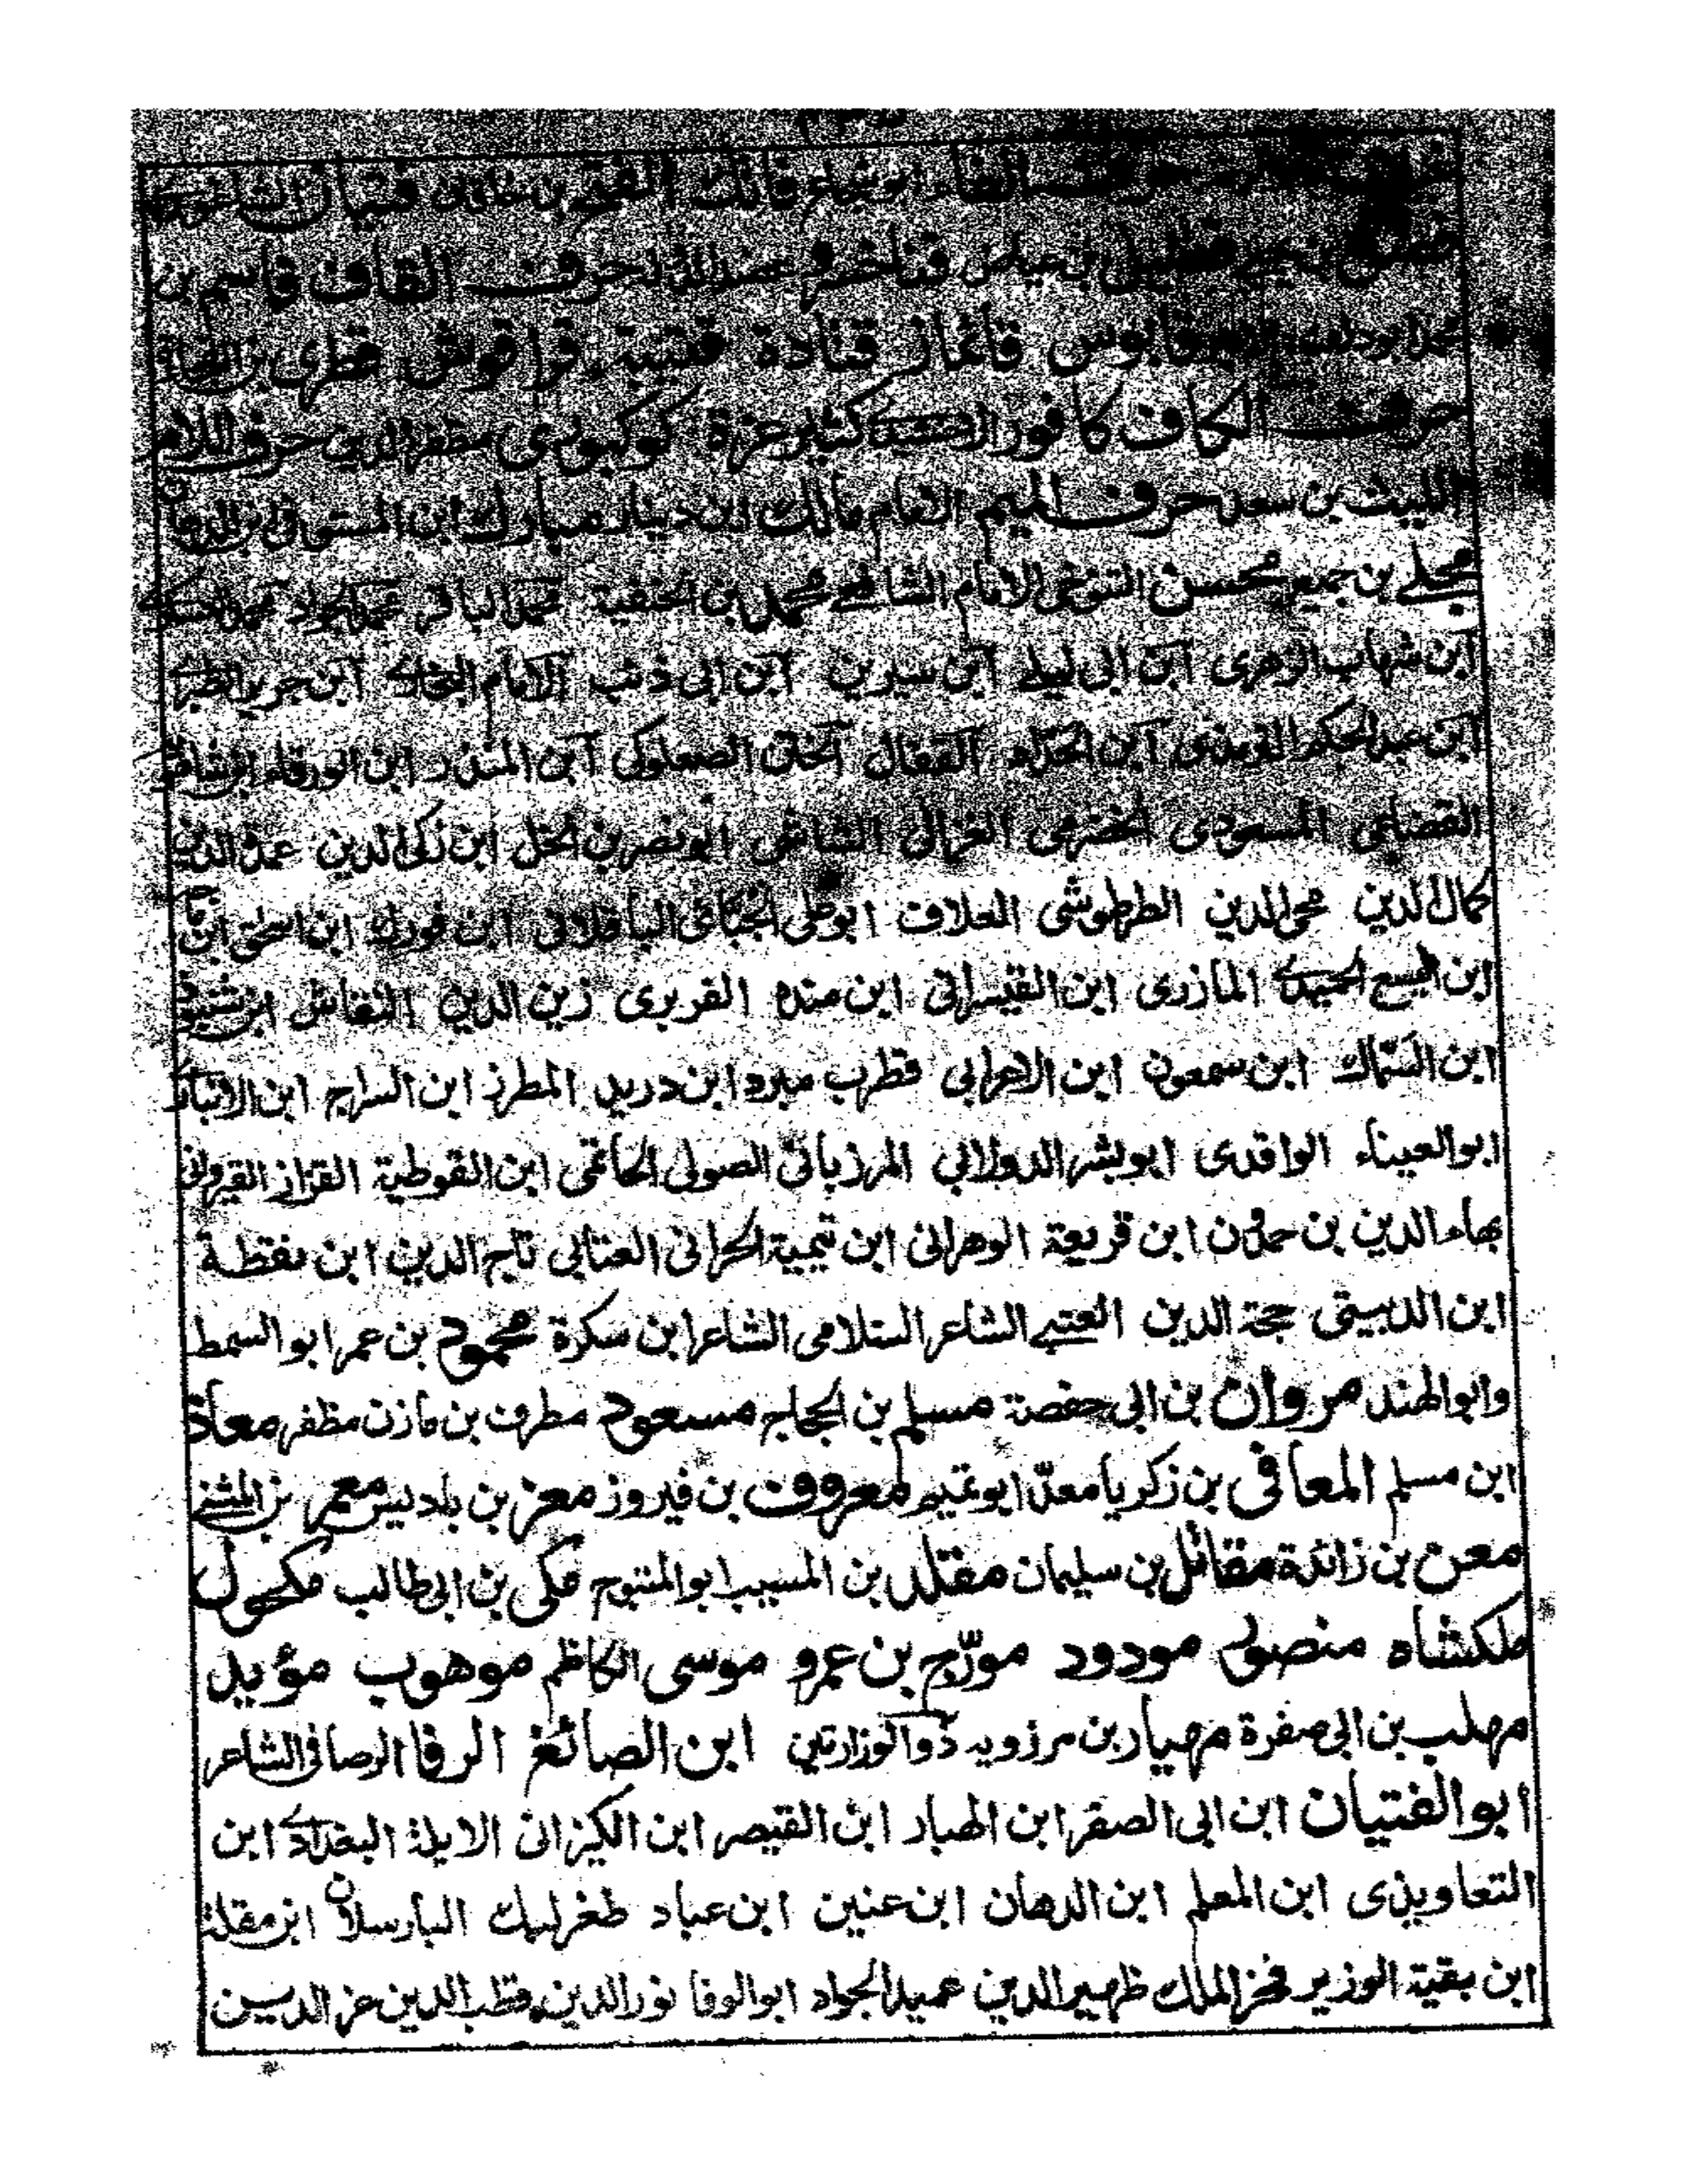 حرف الفاء ابو شجاع فاتك الفتح بن خاقان فتيان الشاغوري
فضل بن يحيى فضيل بن عياض فناخسرو عضد الدولة حرف القاف قاسم بن
محمد ابو دلف قابوس قائماز قتادة قتيبة قراقوش قطري بن الفجاءة
حرف الكاف كافور كثير عزة كوكبوري مظفر الدين حرف اللام
الليث بن سعد حرف الميم الامام مالك ابن دينار مبارك ابن المستوفى ابن الدهان
مجلى بن جميع محسن التنوخي الامام الشافعي محمد بن الحنفية محمد الباقر محمد الجواد محمد العسكري
ابن شهاب الزهرى ابن ابى ليلى ابن سيرين ابن ابى ذئب الامام البخارى ابن جرير الطبرى
ابن عبد الحكم الترمذى ابن الحداد القفال الختن الصعلوكى ابن المنذر ابن الورقاء
القضاعى المسعودى الخضرمى الغزالى الشاشى ابو نصر بن نخل ابن زكى الدين عماد الدين
كمال الدين محى الدين الطرطوشى العلاف ابو على الجبائى الباقلانى ابن فورك ابن اسحق
ابن اليسع الحميدى المازرى ابن القيسرانى ابن منده الفربرى زين الدين النقاش ابن شنبوذ
ابن السماك ابن سمعون ابن الاعرابى قطرب مبرد ابن دريد المطرز ابن السراج ابن الانبارى
ابو العيناء الواقدى ابو بشر الدولابى المرزبانى الصولى الحاتمى ابن القوطية القزاز القيروانى
بهاء الدين بن حمدون ابن قريعة الوهرانى ابن تيمية الحرانى العتابى تاج الدين ابن نقطة
ابن الدبيثى حجة الدين العتبى الشاعر السلامى الشاعر ابن سكرة محمود بن عمر ابو السمط
وابو الهند مروان بن ابى حفصة مسلم بن الحجاج مسعود مطرف بن مازن مظفر معاذ
ابن مسلم المعافى بن زكريا معدّ ابو تميم معروف بن فيروز معز بن باديس معمر بن المثنى
معن بن زائدة مقاتل بن سليمان مقلد بن المسيب ابو المتوج مكى بن ابى طالب مكحول
ملكشاه منصور مودود مورّج بن عمرو موسى الكاظم موهوب مؤيد
مهلب بن ابى صفرة مهيار بن مرزويه ذو الوزارتين ابن الصائغ الرفا الرصافى الشاعر
ابو الفتيان ابن ابى الصقر ابن الهبار ابن القيصر ابن الكيزان الابله البغدادى ابن
التعاويذى ابن المعلم ابن الدهان ابن عنين ابن عباد طغرلبك البارسلان ابن مقلة
ابن بقية الوزير فخر الملك ظهير الدين عميد الجواد ابو الوفا نور الدين قطب الدين عز الدين